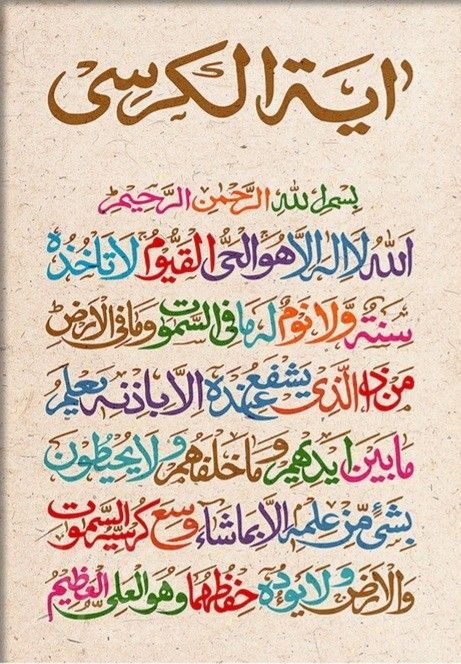 اية الكرسى
بسم الله الرحمن الرحيم
الله لا اله الا هو الحى القيوم لا تاخذه
سنة ولا نوم له ما فى السموت وما فى الارض
من ذا الذى يشفع عنده الا باذنه يعلم
ما بين ايديهم وما خلفهم ولا يحيطون
بشئ من علمه الا بما شاء وسع كرسيه السموت
والارض ولا يوده حفظهما وهو العلى العظيم